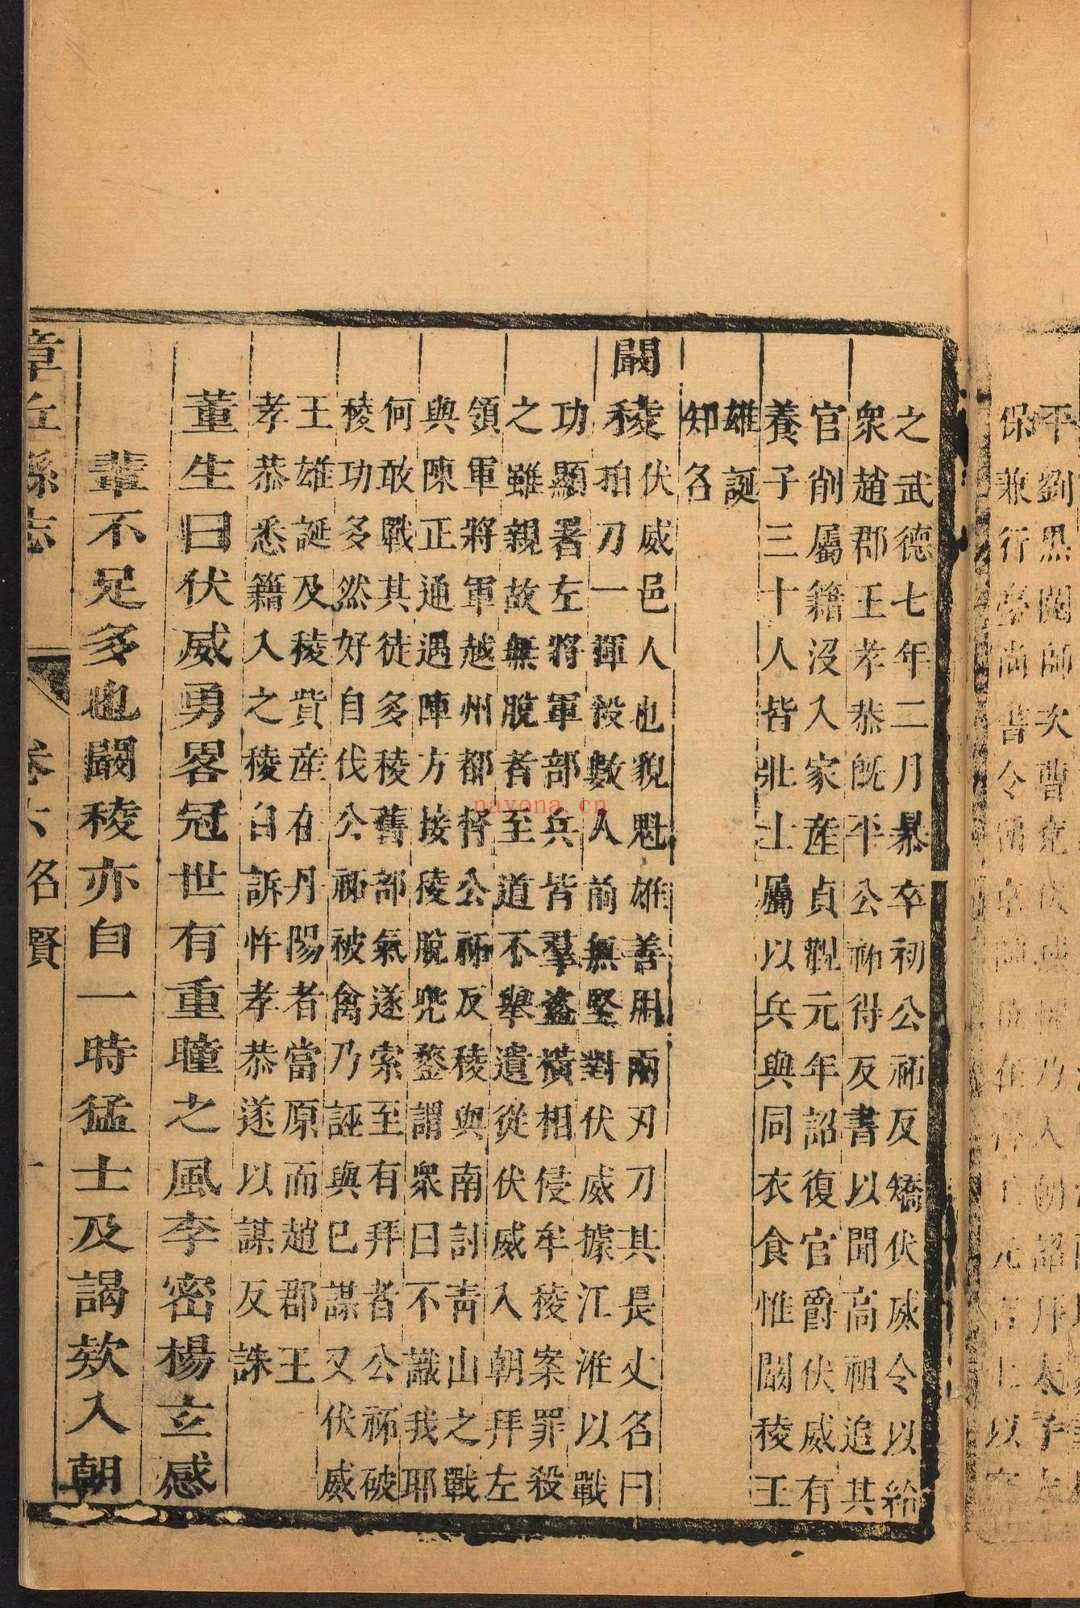 平劉黑闥師次曹兗伏威懼乃入朝詔拜太子太
保兼行臺尚書令留京
之武德七年二月暴卒初公祏反矯伏威令以給
衆趙郡王孝恭既平公祏得反書以聞高祖追其
官削屬籍沒入家産貞觀元年詔復官爵伏威有
養子三十人皆壯士屬以兵與同衣食惟闞稜王
雄誕
知名
闞稜
伏威邑人也貌魁雄善用兩刃刀其長丈名曰
拍刀一揮殺數人前無堅對伏威據江淮以戰
功顯署左將軍部兵皆羣盜橫相侵牟稜案罪殺
之雖親故無脫者至道不舉遺從伏威入朝拜左
領軍將軍越州都督公祏反稜與南討青山之戰
與陳正通遇陣方接稜脫兜鍪謂衆曰不識我耶
何敢戰其徒多稜舊部氣遂索至有拜者公祏破
稜功多然好自伐公祏被禽乃誣與已謀又伏威
王雄誕及稜貲産在丹陽者當原而趙郡王
孝恭悉籍入之稜自訴忤孝恭遂以謀反誅
董生曰伏威勇畧冠世有重瞳之風李密楊玄感
輩不足多也闞稜亦自一時猛士及謁欵入朝
章丘縣志 卷六 名賢 十
nayona.cn